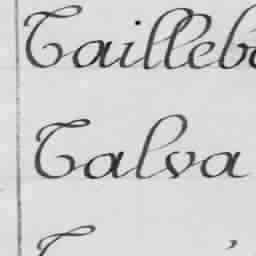 Tailleb
Talva